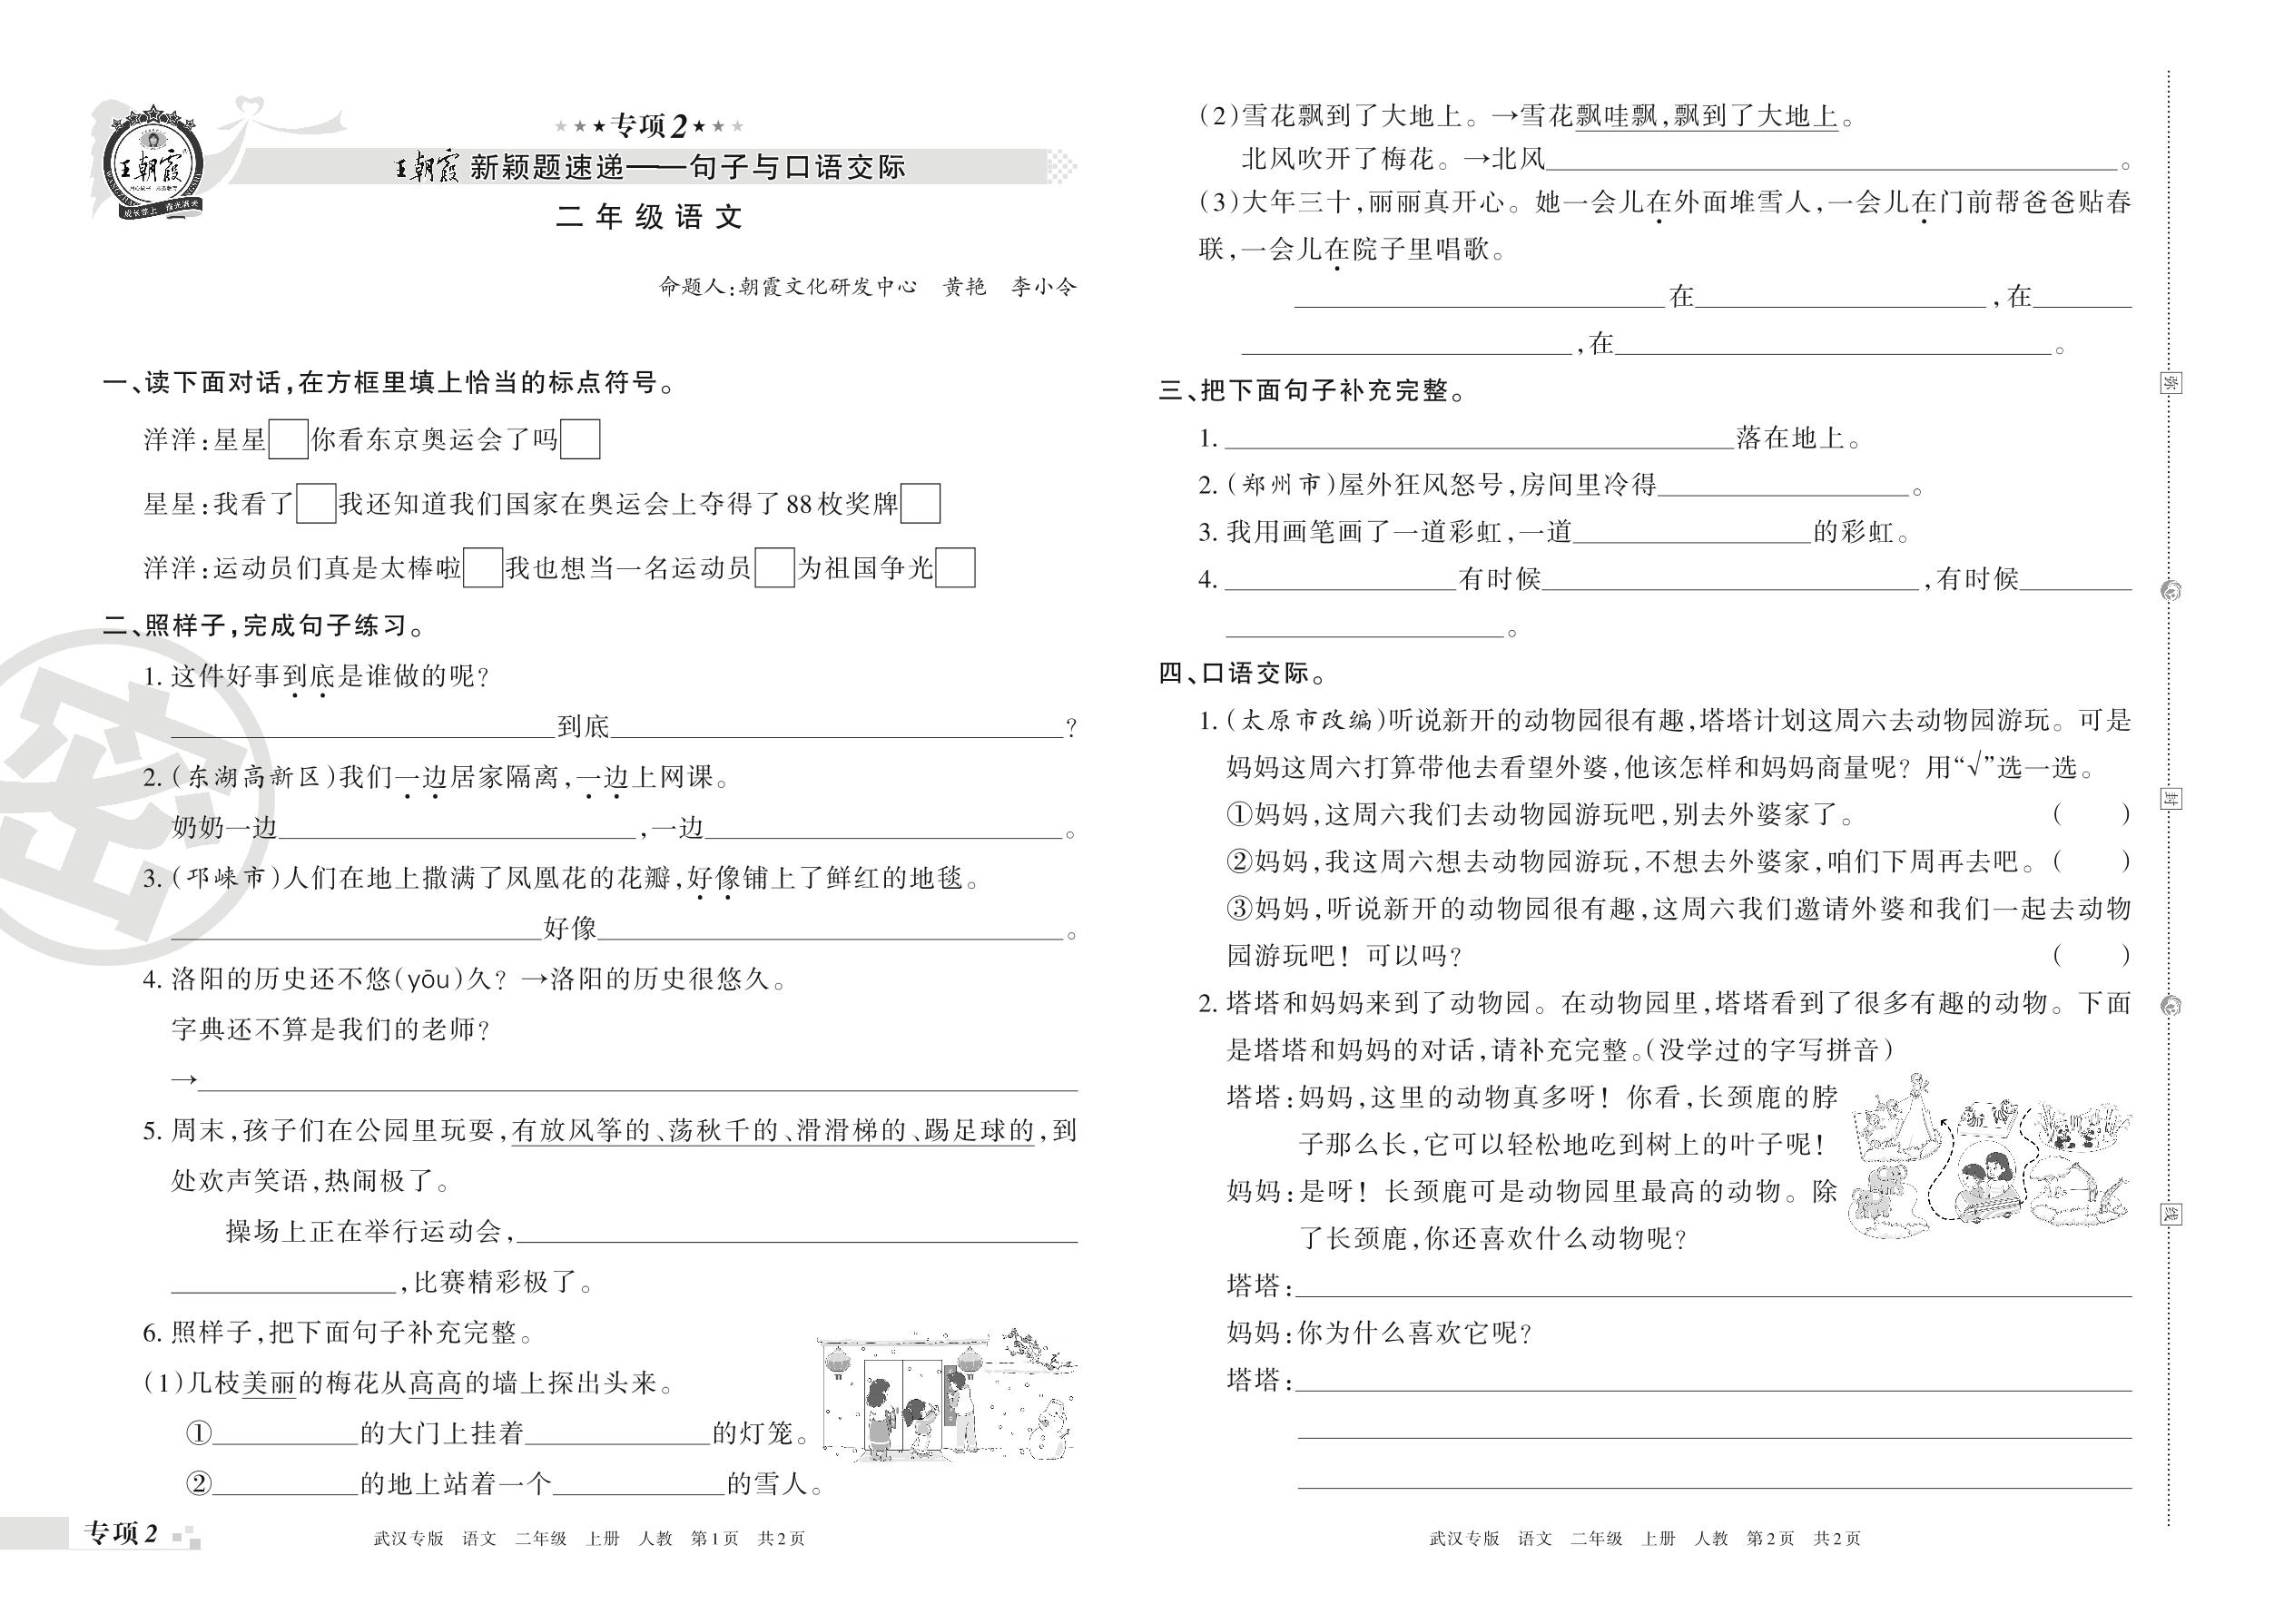 ★★★专项2★★★
王朝霞 新颖题速递——句子与口语交际
王朝霞
二年级语文
命题人:朝霞文化研发中心 黄艳 李小令
一、读下面对话,在方框里填上恰当的标点符号。
洋洋:星星□你看东京奥运会了吗□
星星:我看了□我还知道我们国家在奥运会上夺得了88枚奖牌□
洋洋:运动员们真是太棒啦□我也想当一名运动员□为祖国争光□
二、照样子,完成句子练习。
1. 这件好事到底是谁做的呢?
____到底____?
2.(东湖高新区)我们一边居家隔离,一边上网课。
奶奶一边____,一边____。
3.(邛崃市)人们在地上撒满了凤凰花的花瓣,好像铺上了鲜红的地毯。
____好像____。
4. 洛阳的历史还不悠(yōu)久?→洛阳的历史很悠久。
字典还不算是我们的老师?
→____
5. 周末,孩子们在公园里玩耍,有放风筝的、荡秋千的、滑滑梯的、踢足球的,到
处欢声笑语,热闹极了。
操场上正在举行运动会,____
____,比赛精彩极了。
6. 照样子,把下面句子补充完整。
(1)几枝美丽的梅花从高高的墙上探出头来。
①____的大门上挂着____的灯笼。
②____的地上站着一个____的雪人。
密
专项2
武汉专版 语文 二年级 上册 人教 第1页 共2页
(2)雪花飘到了大地上。→雪花飘哇飘,飘到了大地上。
北风吹开了梅花。→北风____。
(3)大年三十,丽丽真开心。她一会儿在外面堆雪人,一会儿在门前帮爸爸贴春
联,一会儿在院子里唱歌。
____在____,在____
____,在____。
三、把下面句子补充完整。
1. ____落在地上。
2.(郑州市)屋外狂风怒号,房间里冷得____。
3. 我用画笔画了一道彩虹,一道____的彩虹。
4. ____有时候____,有时候____
____。
四、口语交际。
1.(太原市改编)听说新开的动物园很有趣,塔塔计划这周六去动物园游玩。可是
妈妈这周六打算带他去看望外婆,他该怎样和妈妈商量呢?用“√”选一选。
①妈妈,这周六我们去动物园游玩吧,别去外婆家了。 ( )
②妈妈,我这周六想去动物园游玩,不想去外婆家,咱们下周再去吧。( )
③妈妈,听说新开的动物园很有趣,这周六我们邀请外婆和我们一起去动物
园游玩吧!可以吗? ( )
2. 塔塔和妈妈来到了动物园。在动物园里,塔塔看到了很多有趣的动物。下面
是塔塔和妈妈的对话,请补充完整。(没学过的字写拼音)
塔塔:妈妈,这里的动物真多呀!你看,长颈鹿的脖
子那么长,它可以轻松地吃到树上的叶子呢!
妈妈:是呀!长颈鹿可是动物园里最高的动物。除
了长颈鹿,你还喜欢什么动物呢?
塔塔:____
妈妈:你为什么喜欢它呢?
塔塔:____
武汉专版 语文 二年级 上册 人教 第2页 共2页
弥
封
线